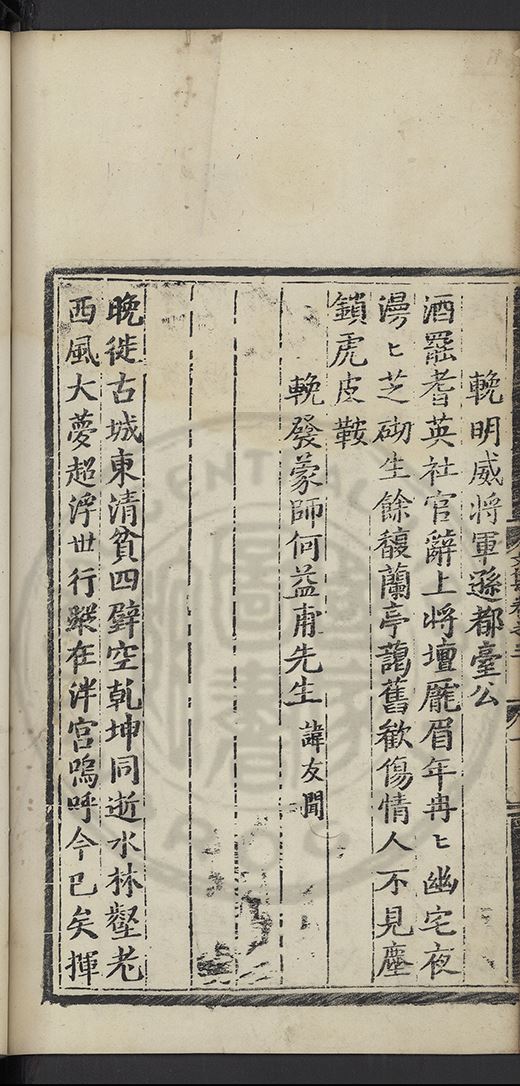 輓明威將軍遜都臺公
酒罷耆英社官辭上將壇厖眉年冉〻幽宅夜
漫〻芝砌生餘馥蘭亭藹舊歡傷情人不見塵
鎖虎皮鞍
輓發蒙師何益甫先生 諱友聞
晩徙古城東清貧四壁空乾坤同逝水林壑老
西風大夢超浮世行蹤在泮宮嗚呼今已矣揮